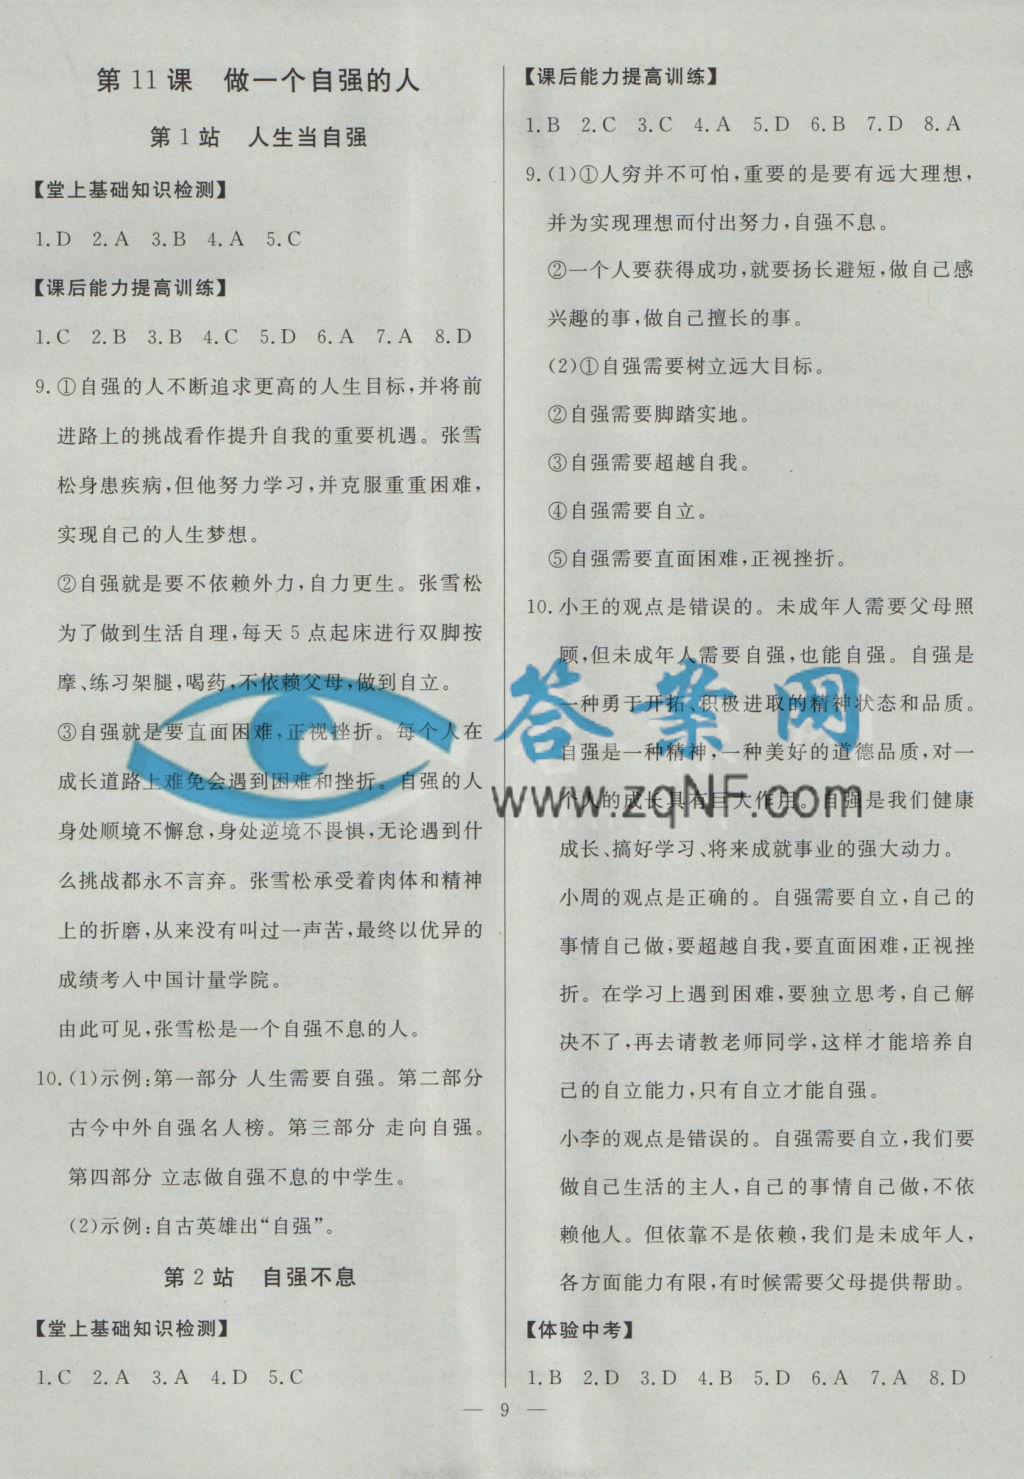 第 11 课　做一个自强的人
第 1 站　人生当自强
【堂上基础知识检测】
1.D 2.A 3.B 4.A 5.C
【课后能力提高训练】
1.C 2.B 3.B 4.C 5.D 6.A 7.A 8.D
9.①自强的人不断追求更高的人生目标,并将前
进路上的挑战看作提升自我的重要机遇。张雪
松身患疾病,但他努力学习,并克服重重困难,
实现自己的人生梦想。
②自强就是要不依赖外力,自力更生。张雪松
为了做到生活自理,每天 5 点起床进行双脚按
摩、练习架腿,喝药,不依赖父母,做到自立。
③自强就是要直面困难,正视挫折。每个人在
成长道路上难免会遇到困难和挫折。自强的人
身处顺境不懈怠,身处逆境不畏惧,无论遇到什
么挑战都永不言弃。张雪松承受着肉体和精神
上的折磨,从来没有叫过一声苦,最终以优异的
成绩考入中国计量学院。
由此可见,张雪松是一个自强不息的人。
10.(1)示例:第一部分 人生需要自强。第二部分
古今中外自强名人榜。第三部分 走向自强。
第四部分 立志做自强不息的中学生。
(2)示例:自古英雄出“自强”。
第 2 站　自强不息
【堂上基础知识检测】
1.C 2.A 3.A 4.D 5.C
【课后能力提高训练】
1.B 2.C 3.C 4.A 5.D 6.B 7.D 8.A
9.(1)①人穷并不可怕,重要的是要有远大理想,
并为实现理想而付出努力,自强不息。
②一个人要获得成功,就要扬长避短,做自己感
兴趣的事,做自己擅长的事。
(2)①自强需要树立远大目标。
②自强需要脚踏实地。
③自强需要超越自我。
④自强需要自立。
⑤自强需要直面困难,正视挫折。
10.小王的观点是错误的。未成年人需要父母照
顾,但未成年人需要自强,也能自强。自强是
一种勇于开拓、积极进取的精神状态和品质。
自强是一种精神,一种美好的道德品质,对一
个人的成长具有巨大作用。自强是我们健康
成长、搞好学习、将来成就事业的强大动力。
小周的观点是正确的。自强需要自立,自己的
事情自己做,要超越自我,要直面困难,正视挫
折。在学习上遇到困难,要独立思考,自己解
决不了,再去请教老师同学,这样才能培养自
己的自立能力,只有自立才能自强。
小李的观点是错误的。自强需要自立,我们要
做自己生活的主人,自己的事情自己做,不依
赖他人。但依靠不是依赖,我们是未成年人,
各方面能力有限,有时候需要父母提供帮助。
【体验中考】
1.B 2.D 3.D 4.D 5.C 6.A 7.A 8.D
— 9 —
答案网
www.zqNF.com